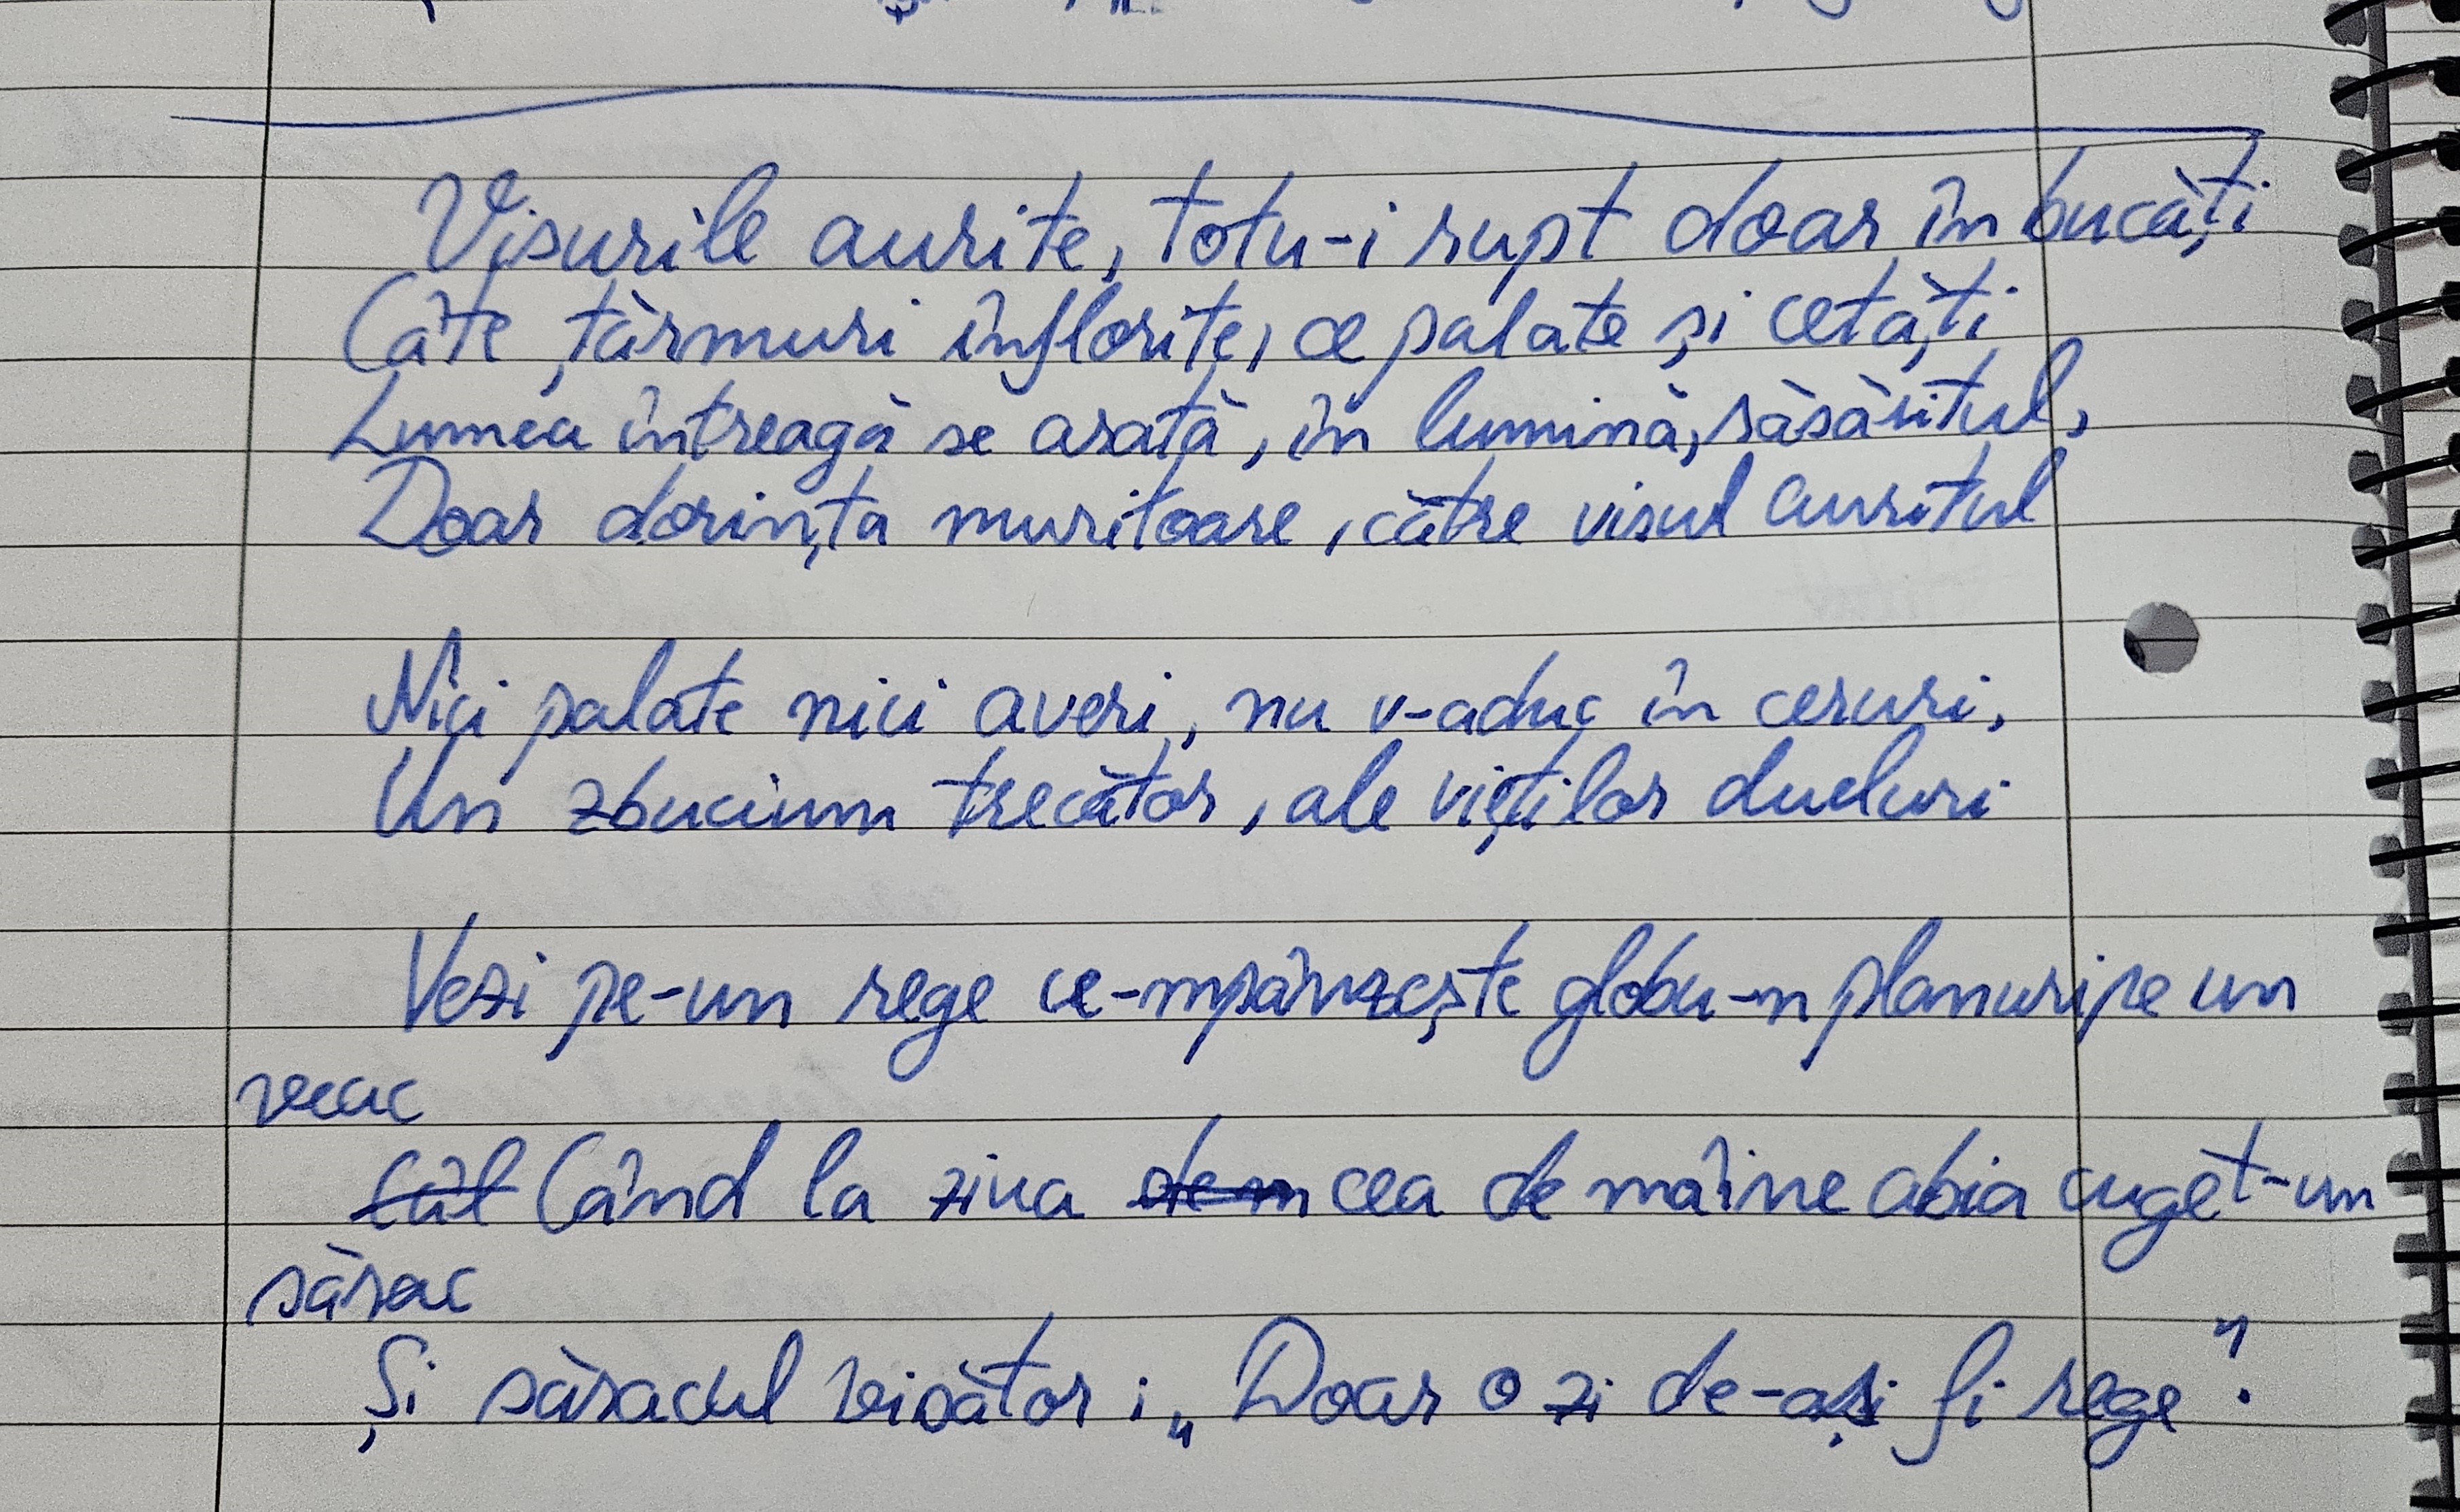 Visurile aurite, totu-i rupt doar în bucăți
Câte țărmuri înflorite, ce palate și cetăți
Lumea întreagă se arată, în lumină, răsăritul,
Doar dorința muritoare, către visul auritul
Nici palate nici averi, nu v-aduc în ceruri,
Un zbucium trecător, ale vieților dueluri
Vezi pe-un rege ce-mpânzește globu-n planuri pe un
veac
Cât Când la ziua de m cea de mâine abia cuget-un
sărac
Și săracul visător: „Doar o zi de-ași fi rege".